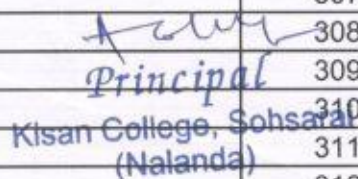 308
Principal 309
Kisan College, Sohsarai 310
(Nalanda) 311